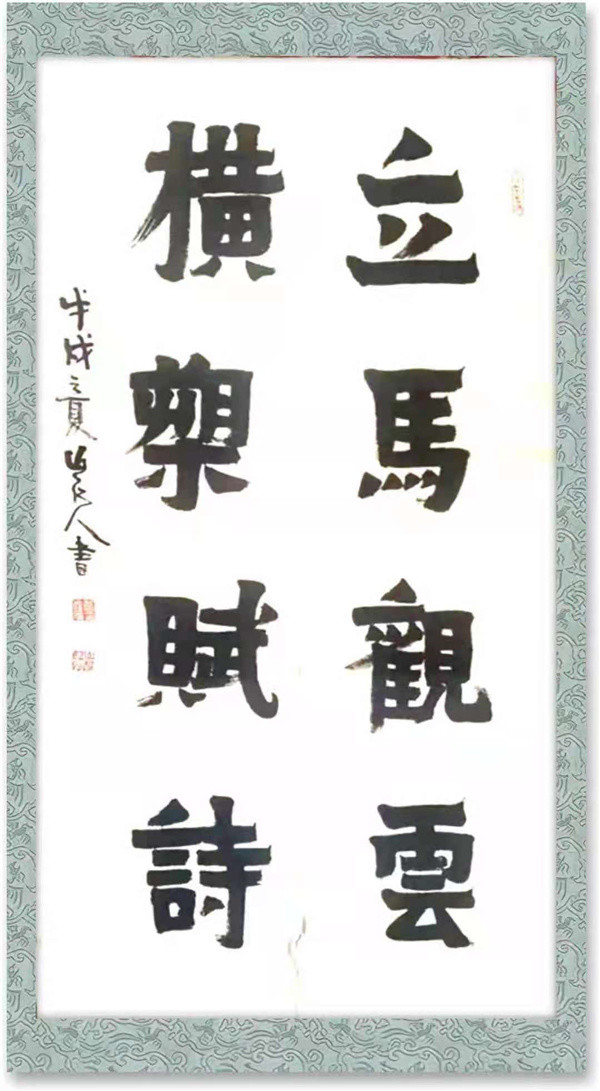 立馬觀雲
橫槊賦詩
戊戌之夏 人書